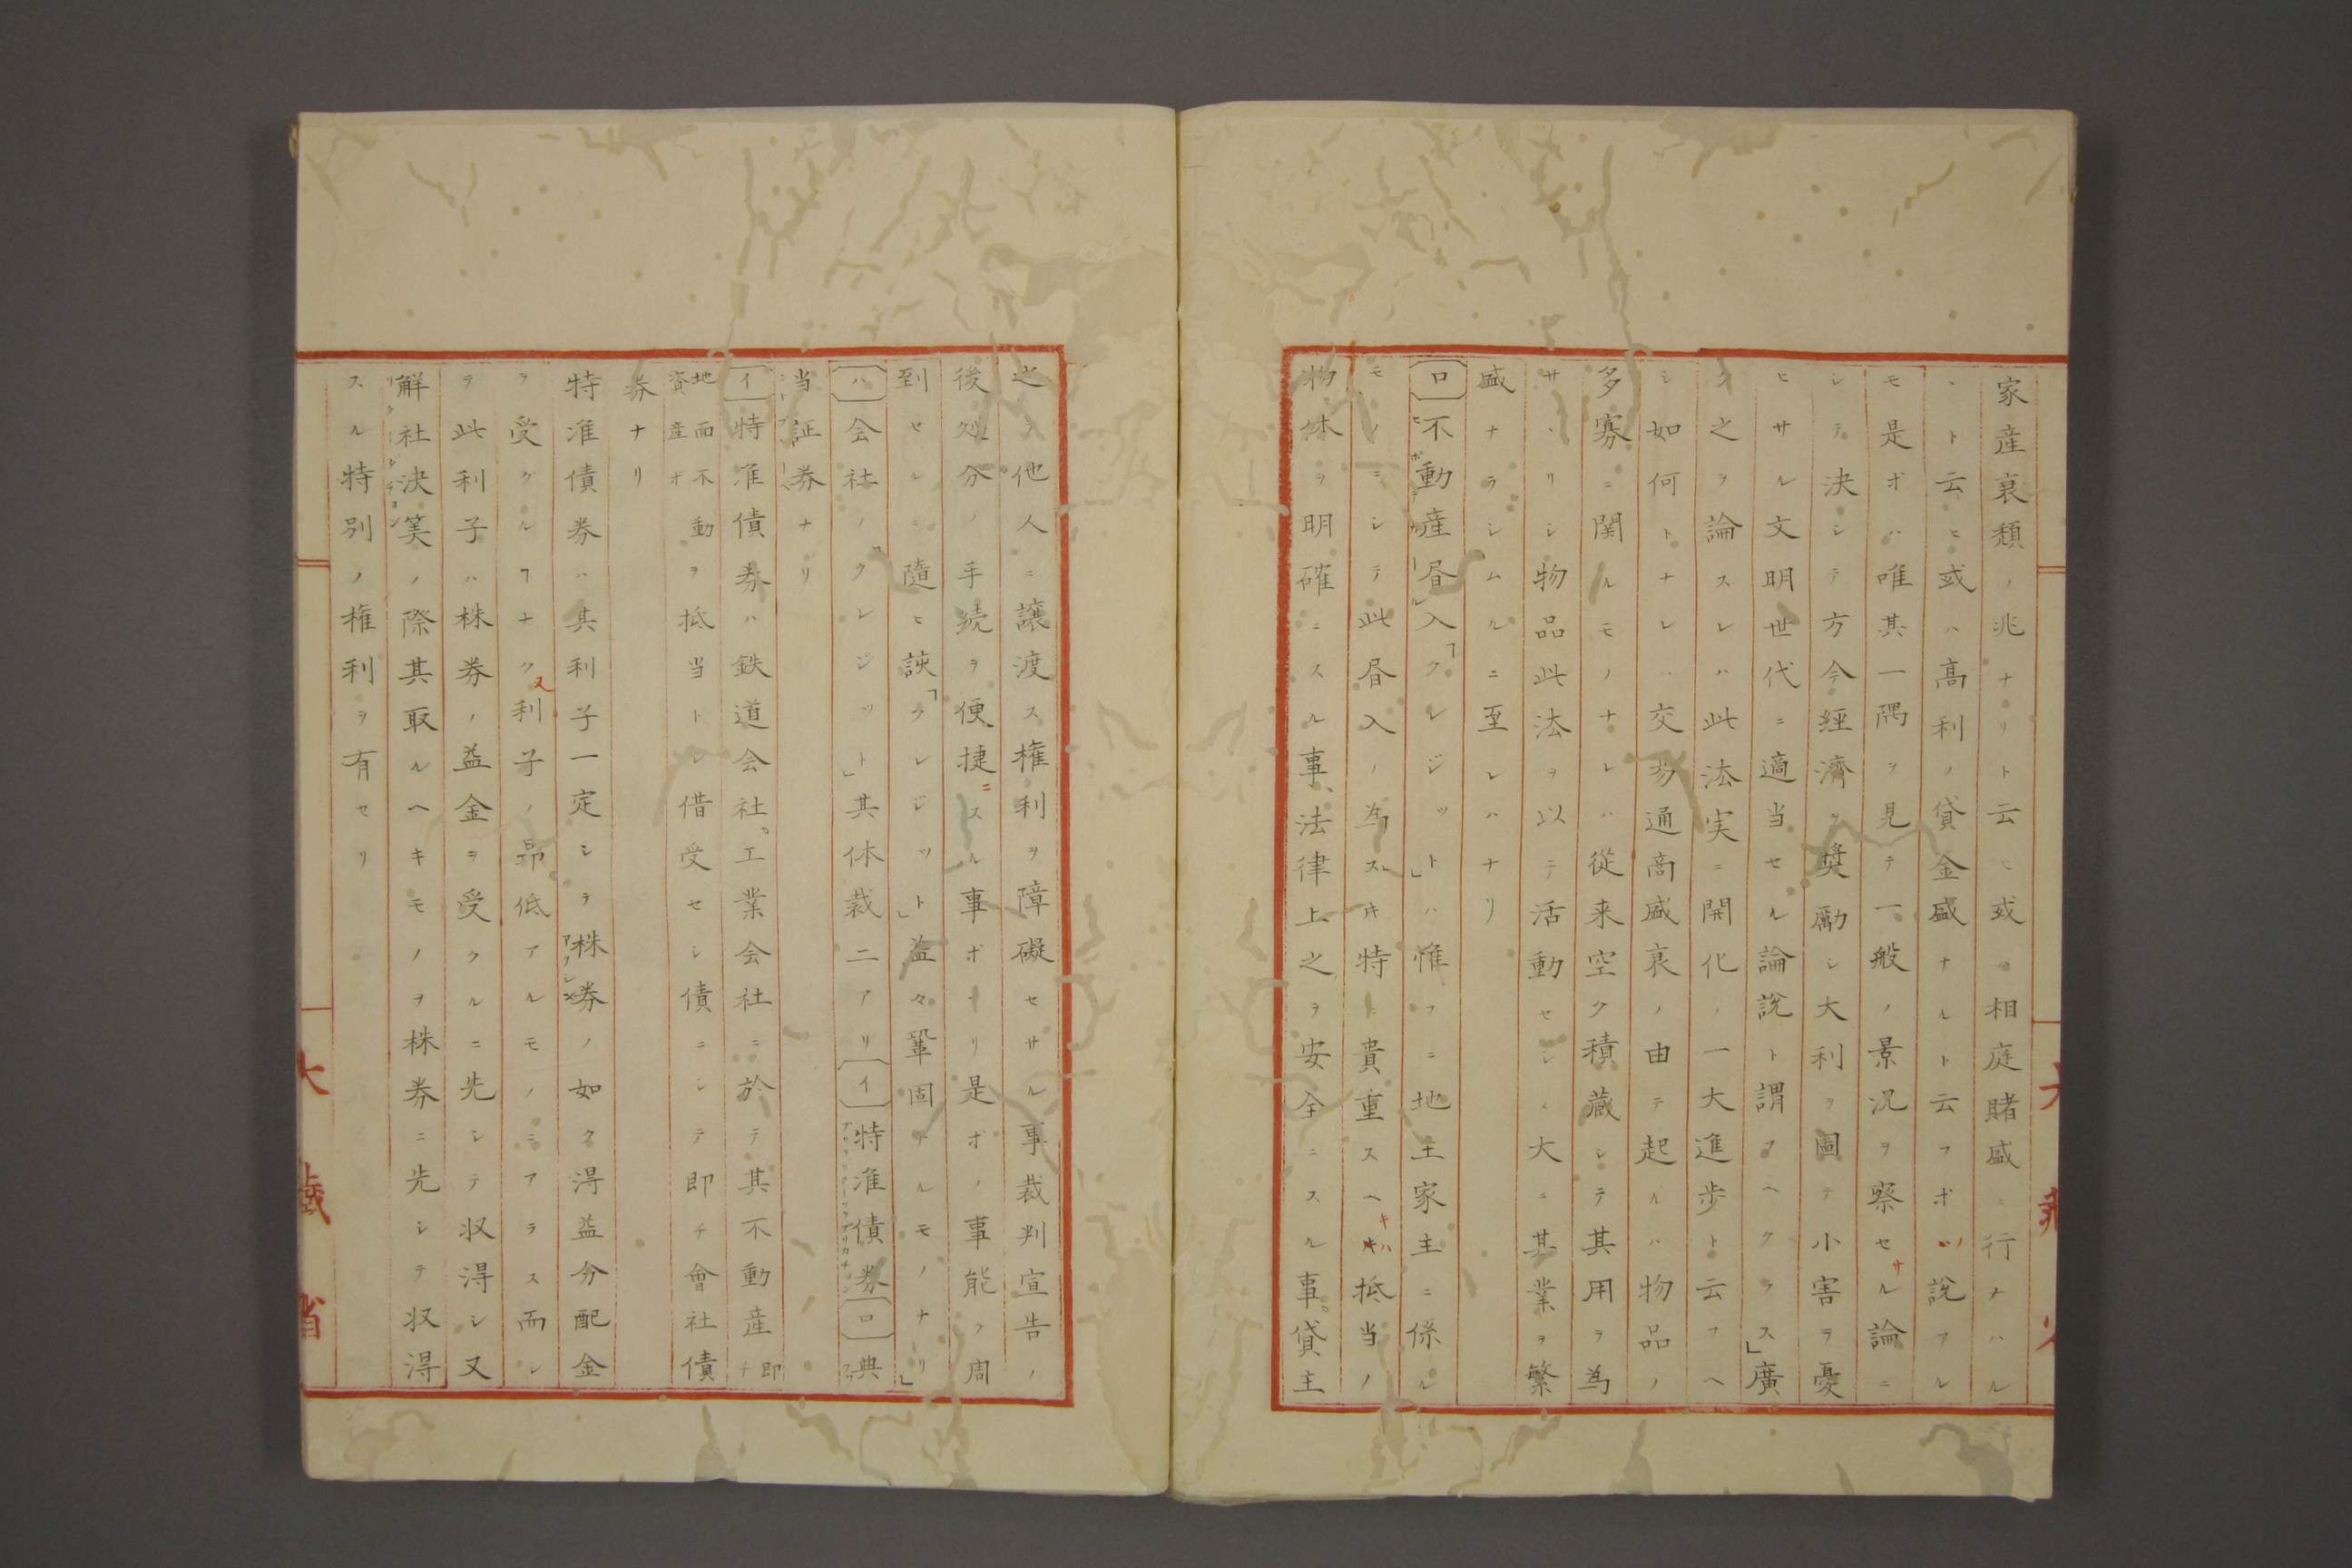 家産衰頽ノ兆ナリト云ヒ或ハ相庭賭盛ニ行ナハル
ヽト云ヒ或ハ高利ノ貸金盛ナルト云フオ説アル
モ是オハ唯其一隅ヲ見テ一般ノ景況ヲ察セサル論ニ
シテ決シテ方今經濟ヲ奨勵シ大利ヲ圖テ小害ヲ憂
ヒサル文明世代ニ適当セル論説ト謂フヘクラス」廣
ク之ヲ論スレハ此法実ニ開化ノ一大進歩ト云フヘ
シ如何トナレハ交易通商盛衰ノ由テ起ルハ物品ノ
多寡ニ関ルモノナレハ從来空ク積蔵シテ其用ヲ為
サヽリシ物品此法ヲ以テ活動セシメ大ニ其業ヲ繁
盛ナラシムルニ至レハナリ
ロ 不動産昼入「クレジット」ハ惟フニ地主家主ニ係ル
モノニシテ此昼入ノ為ス特ト貴重スヘキハ抵当ノ
物体ヲ明確ニスル事、法律上之ヲ安全ニスル事。貸主
大蔵省
之ヲ他人ニ譲渡ス権利ヲ障礙セサル事裁判宣告ノ
後処分ノ手続ヲ便捷ニスル事オナリ是オノ事能ク周
到セルニ隨ヒ該「クレジット」益々鞏固ナルモノナリ」
ハ 会社ノ「クレジット」其体裁二アリ イ 特准債券 ロ 典
当証券ナリ
イ 特准債券ハ鉄道会社、工業会社ニ於テ其不動産即チ
地面不動資産オヲ抵当トシ借受セシ債ニシテ即チ會社債
券ナリ
特准債券ハ其利子一定シテ株券ノ如ク得益分配金
ヲ受クルヿナク又利子ノ昂低アルモノニアラス而シ
テ此利子ハ株券ノ益金ヲ受クルニ先シテ収得シ又
解社決算ノ際其取ルヘキモノヲ株券ニ先シテ収得
スル特別ノ権利ヲ有セリ
大蔵省